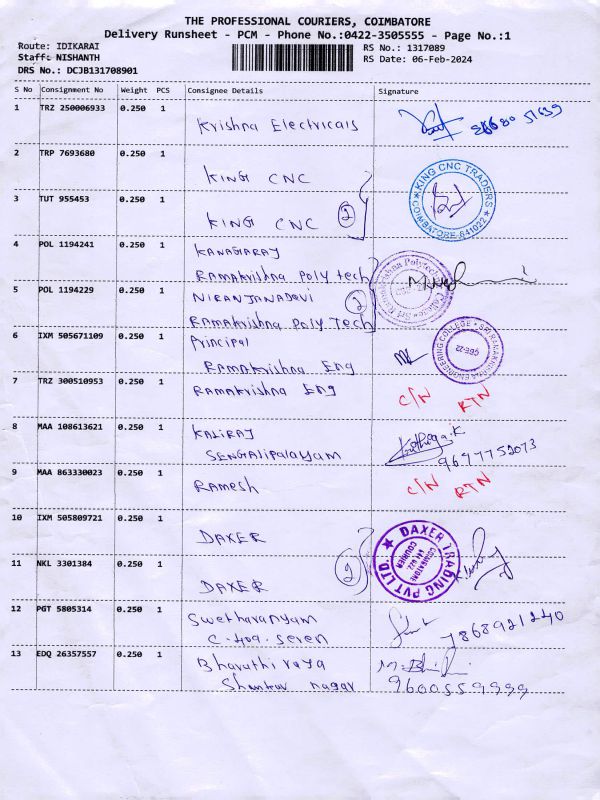 THE PROFESSIONAL COURIERS, COIMBATORE
Delivery Runsheet - PCM - Phone No.:0422-3505555 - Page No.:1
Route: IDIKARAI
RS No.: 1317089
Staff: NISHANTH
RS Date: 06-Feb-2024
DRS No.: DCJB131708901
S No Consignment No Weight PCS Consignee Details Signature
1 TRZ 250006933 0.250 1
Krishna Electricals
2 TRP 7693680 0.250 1
KING CNC
KING CNC TRADERS
COIMBATORE-641022
3 TUT 955453 0.250 1
KING CNC 2
4 POL 1194241 0.250 1
KANAGARAJ
RAMAKrishna Poly tech
5 POL 1194229 0.250 1
NIRANJANADEVI 2
RAMAKrishna Poly Tech
6 IXM 505671109 0.250 1
Principal
RAMAKrishna Eng
SRI RAMAKRISHNA ENGINEERING COLLEGE
7 TRZ 300510953 0.250 1
RAMAKrishna Eng
C/N RTN
8 MAA 108613621 0.250 1
KALIRAJ
SENGALIPALAYAM
9697752073
9 MAA 863330023 0.250 1
RAMESH
C/N RTN
10 IXM 505809721 0.250 1
DAXER
DAXER TRADING PVT LTD.
11 NKL 3301384 0.250 1
DAXER 2
12 PGT 5805314 0.250 1
Swetharanyam
C-409. Seven
7868921240
13 EDQ 26357557 0.250 1
Bharathi raya
Shankar nagar
9600559999